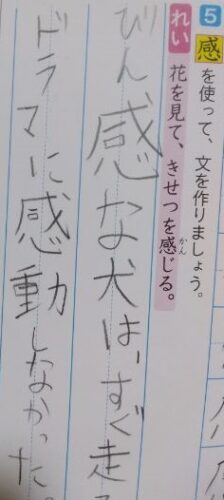 5 感を使って、文を作りましょう。
れい 花を見て、きせつを感じる。
かん
びん感な犬は、すぐ走
ドラマに感動しなかった。